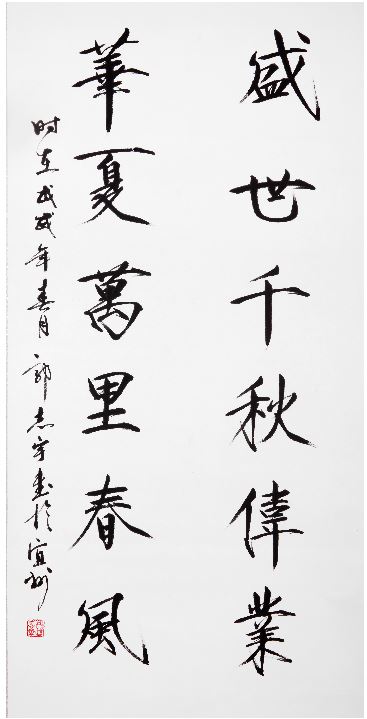 盛世千秋偉業
華夏萬里春風
时在戊戌年春月郭志宇书於宜州